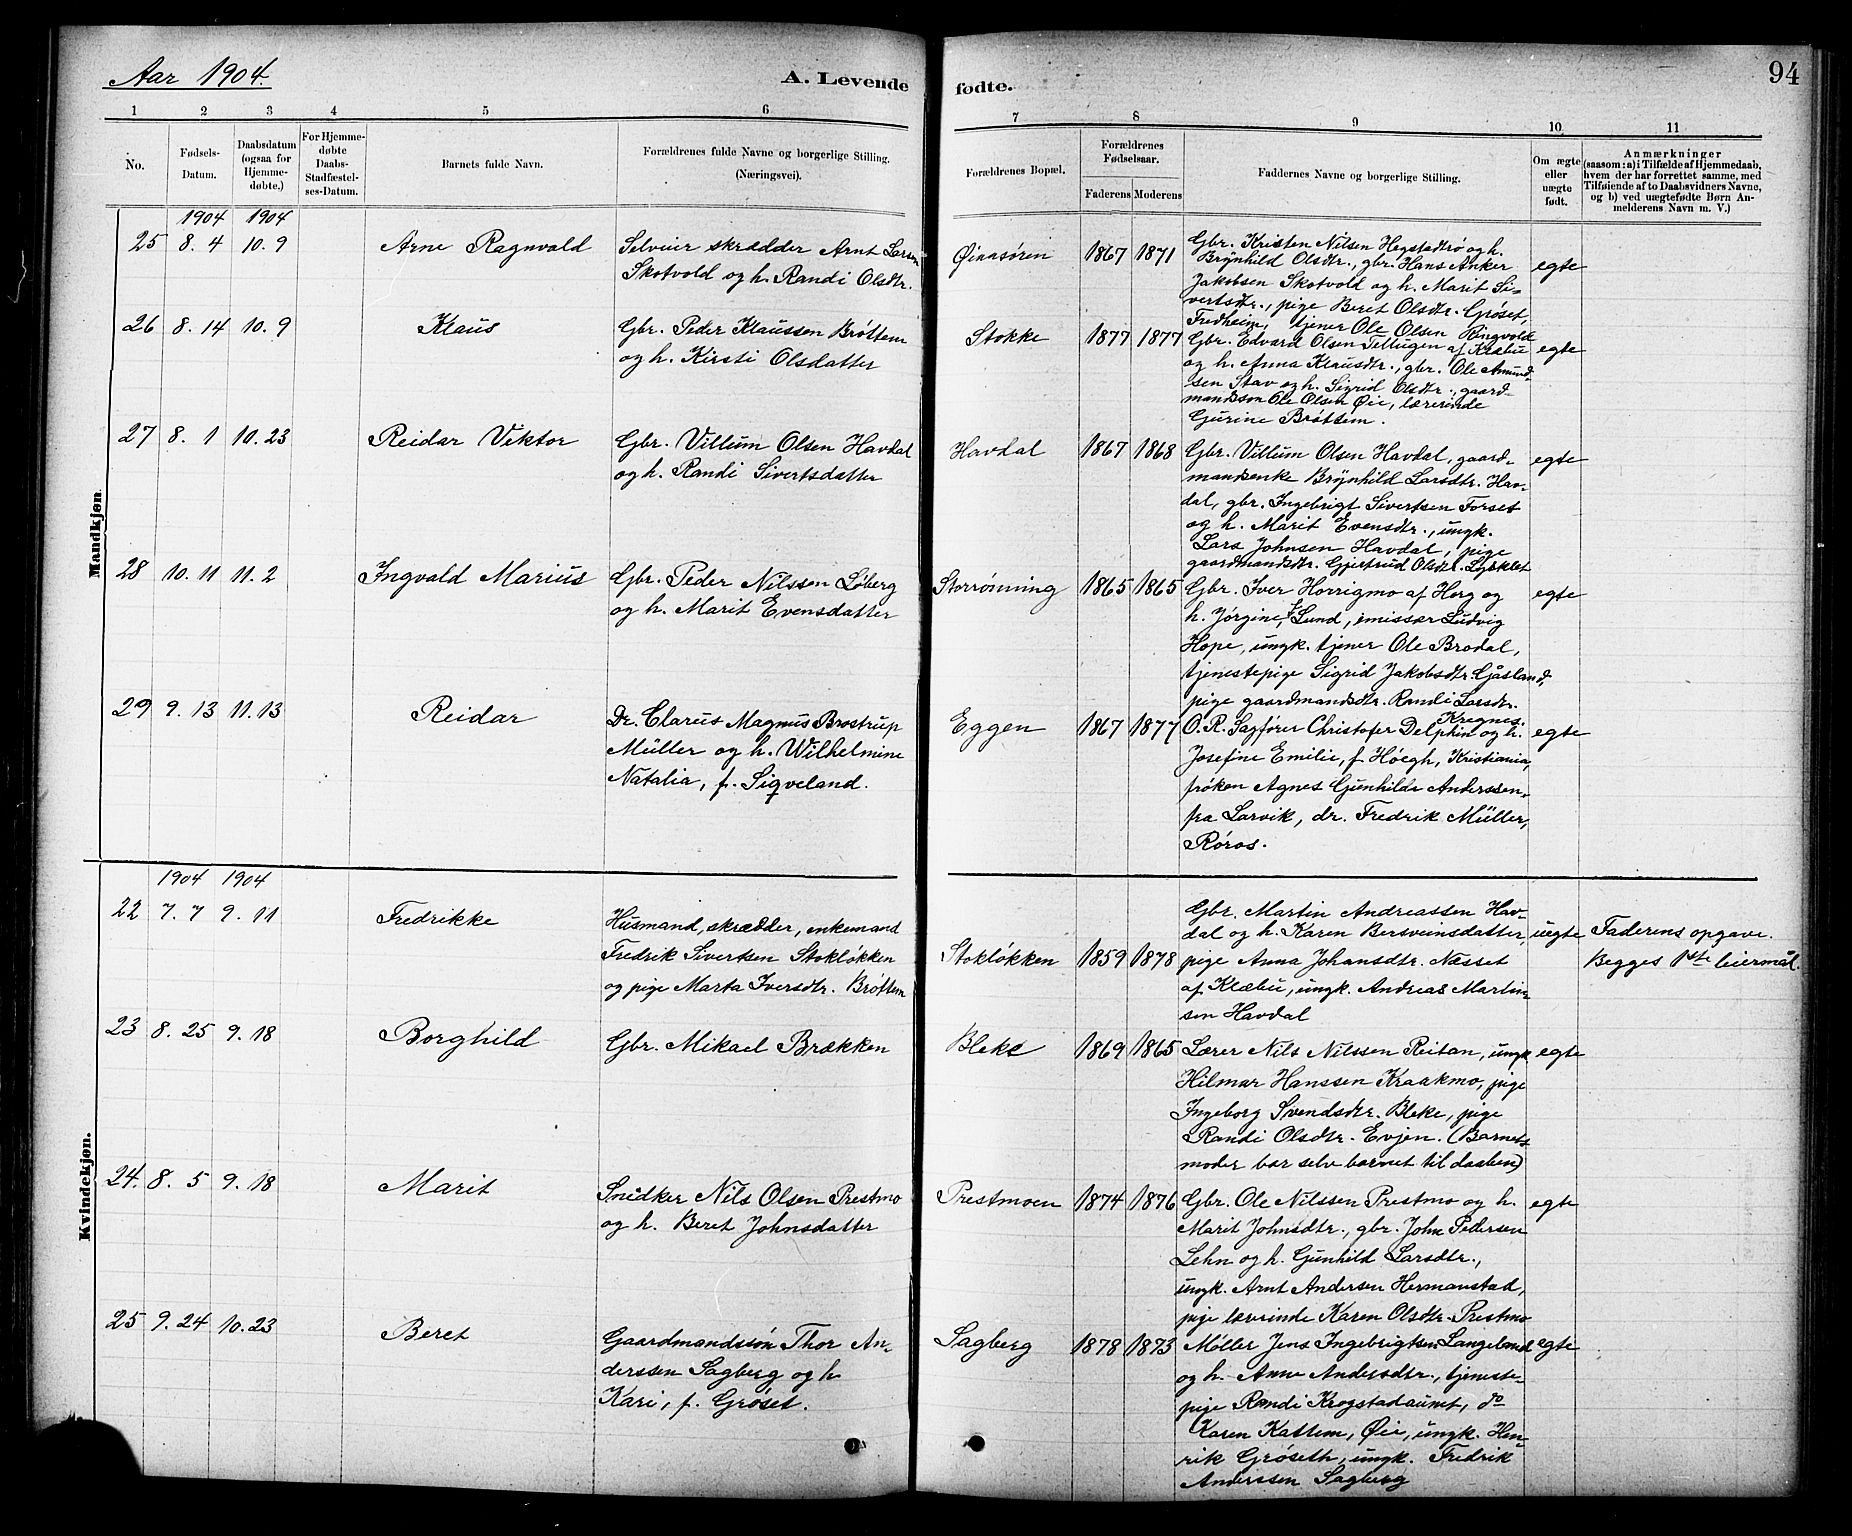 Aar 1904.
A. Levende fødte.
94
1 2 3 4 5 6 7 8 9 10 11
No.
Fødsels-
Datum.
Daabsdatum
(ogsaa for
Hjemme-
døbte.)
For Hjemme-
døbte
Daabs-
Stadfæstel-
ses-Datum.
Barnets fulde Navn.
Forældrenes fulde Navne og borgerlige Stilling.
(Næringsvei).
Forældrenes Bopæl.
Forældrenes
Fødselsaar.
Faderens Moderens
Faddernes Navne og borgerlige Stilling.
Om ægte
eller
uægte
født.
Anmærkninger
(saasom: a) i Tilfælde af Hjemmedaab,
hvem der har forrettet samme, med
Tilføiende af to Daabsvidners Navne,
og b) ved uægtefødte Børn An-
melderens Navn m. V.)
Mandkjøn.
1904 1904
25 8. 4 10. 9 Arne Ragnvald
Selveier skrædder Arnt Larsen
Skotvold og h. Randi Olsdtr.
Øinasøren 1867 1871
Gbr. Kristen Nilsen Hegstadtrø og h.
Brynhild Olsdtr., gbr. Hans Anker
Jakobsen Skotvold og h. Marit Si-
vertsdtr., pige Beret Olsdtr. Grøset,
Fredheim, tjener Ole Olsen Ringvold
egte
26 8. 14 10. 9 Klaus
Gbr. Peder Klaussen Brøttem
og h. Kirsti Olsdatter
Stokke 1877 1877
Gbr. Edvard Olsen Tellugen af Klæbu
og h. Anna Klausdtr., gbr. Ole Amund-
sen Stav og h. Sigrid Olsdtr., gaard-
mandssøn Ole Olsen Øie, lærerinde
Gurine Brøttem.
egte
27 8. 1 10. 23 Reidar Viktor
Gbr. Villum Olsen Havdal
og h. Randi Sivertsdatter
Havdal 1867 1868
Gbr. Villum Olsen Havdal, gaard-
mandsenke Brynhild Larsdtr. Hav-
dal, gbr. Ingebrigt Sivertsen Forset
og h. Marit Evensdtr., ungk.
Lars Johnsen Havdal, pige
gaardmandsdtr. Gjertrud Olsdtr. Lysklet
egte
28 10. 11 11. 2 Ingvald Marius
Gbr. Peder Nilssen Løberg
og h. Marit Evensdatter
Storrønning 1865 1865
Gbr. Iver Horrigmo af Horg og
h. Jørgine, f. Lund, emissær Ludvig
Hope, ungk. tjener Ole Brodal,
tjenestepige Sigrid Jakobsdtr. Gåsland,
pige gaardmandsdtr. Randi Larsdtr.
Kregnes.
egte
29 9. 13 11. 13 Reidar
Dr. Clarus Magnus Brostrup
Müller og h. Wilhelmine
Natalia, f. Sigveland.
Eggen 1867 1877
O.R. Sagfører Christofer Delphin og h.
Josefine Emilie, f Höegh, Kristiania,
frøken Agnes Gunhilde Anderssen,
fra Larvik, dr. Fredrik Müller,
Røros.
egte
Kvindekjøn.
1904 1904
22 7. 7 9. 11 Fredrikke
Husmand, skrædder, enkemand
Fredrik Sivertsen Stokløkken
og pige Marta Iversdtr. Brøttem
Stokløkken 1859 1878
Gbr. Martin Andreassen Hav-
dal og h. Karen Bersveinsdatter,
pige Anna Johansdtr. Næsset
af Klæbu, ungk. Andreas Martin-
sen Havdal
uegte
Faderens opgave.
Begges 1ste leiermål.
23 8. 25 9. 18 Borghild
Gbr. Mikael Brækken
Bleke 1869 1865
Lærer Nils Nilssen Reitan, ungk
Hilmar Hanssen Kraakmo, pige
Ingeborg Svendsdtr. Bleke, pige
Randi Olsdtr. Evjen. (Barnets
moder bar selv barnet til daaben)
egte
24. 8. 5 9. 18 Marit
Snidker Nils Olsen Prestmo
og h. Beret Johnsdatter
Prestmoen 1874 1876
Gbr. Ole Nilssen Prestmo og h.
Marit Johnsdtr., gbr. John Pedersen
Lehn og h. Gunhild Larsdtr.,
ungk. Arnt Andersen Hermanstad,
pige lærinde Karen Olsdtr. Prestmo
egte
25 9. 24 10. 23 Beret
Gaardmandssøn Thor An-
derssen Sagberg og h
Kari, f. Grøset.
Sagberg 1878 1873
Møller Jens Ingebrigtsen Langeland
og h. Anne Andersdtr., tjeneste-
pige Randi Krogstadaunet, do
Karen Kattem, Øie, ungk. Hen-
rik Grøseth, ungk. Fredrik
Anderssen Sagberg
egte